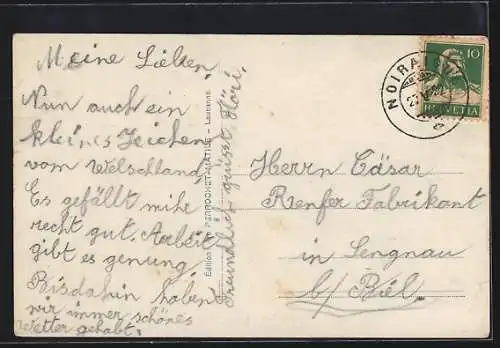 Meine Lieben,
Nun auch ein
kleines Zeichen
vom Welschland.
Es gefällt mihr
recht gut. Arbeit
gibt es genung.
Bisdahin haben
wir immer schönes
Wetter gehabt.
Freundlich grüsst Flöri.
PERROCHET-MATILE – Lausanne.
NOIRAIGUE
10
HELVETIA
Herrn Cäsar
Rienfer Fabrikant
in Lengnau
b/ Biel.